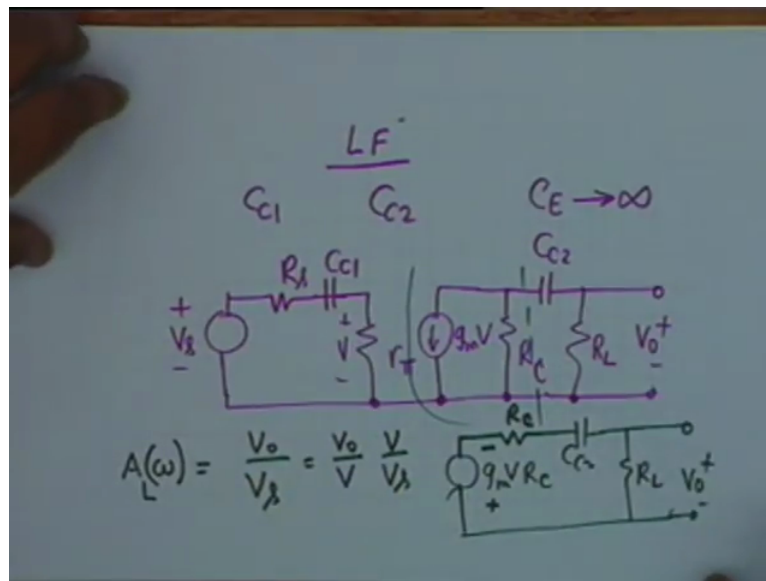 LF
C_C1 C_C2 C_E → ∞
R_s C_C1 C_C2
+ V_s - + V - r_π g_m V R_C R_L V_o + -
A_L(ω) = V_o/V_s = V_o/V V/V_s
R_C C_C2
- g_m V R_C + R_L V_o + -